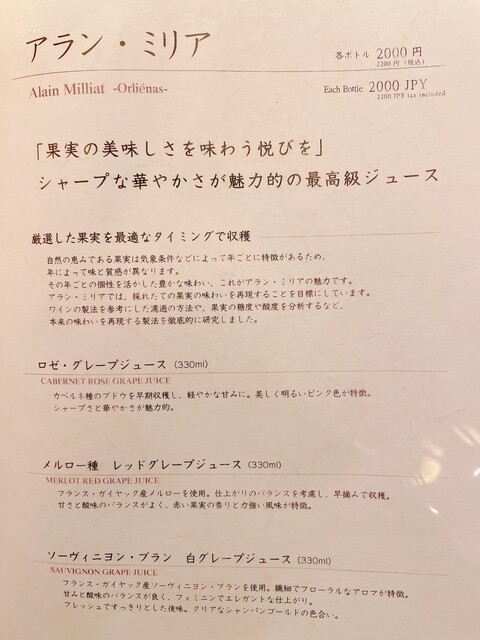 アラン・ミリア
各ボトル 2000 円
2200 円 (税込)
Alain Milliat -Orliénas-
Each Bottle 2000 JPY
2200 JPY tax included
「果実の美味しさを味わう悦びを」
シャープな華やかさが魅力的の最高級ジュース
厳選した果実を最適なタイミングで収穫
自然の恵みである果実は気象条件などによって年ごとに特徴があるため、
年によって味と質感が異なります。
その年ごとの個性を活かした豊かな味わい、これがアラン・ミリアの魅力です。
アラン・ミリアでは、採れたての果実の味わいを再現することを目標にしています。
ワインの製法を参考にした濾過の方法や、果実の糖度や酸度を分析するなど、
本来の味わいを再現する製法を徹底的に研究しました。
ロゼ・グレープジュース (330ml)
CABERNET ROSE GRAPE JUICE
カベルネ種のブドウを早期収穫し、軽やかな甘みに。美しく明るいピンク色が特徴。
シャープさと華やかさが魅力的。
メルロー種 レッドグレープジュース (330ml)
MERLOT RED GRAPE JUICE
フランス・ガイヤック産メルローを使用。仕上がりのバランスを考慮し、早摘みで収穫。
甘さと酸味のバランスがよく、赤い果実の香りと力強い風味が特徴。
ソーヴィニヨン・ブラン 白グレープジュース (330ml)
SAUVIGNON GRAPE JUICE
フランス・ガイヤック産ソーヴィニヨン・ブランを使用。繊細でフローラルなアロマが特徴。
甘みと酸味のバランスが良く、フェミニンでエレガントな仕上がり。
フレッシュですっきりとした後味。クリアなシャンパンゴールドの色合い。